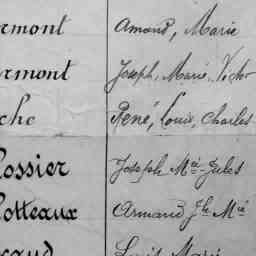 ermont Amand, Marie
ermont Joseph, Marie, Victor
che René, Louis, Charles
Rossier Joseph Mie Jules
lotteaux Armand Jh Mie
caud Louis Marie